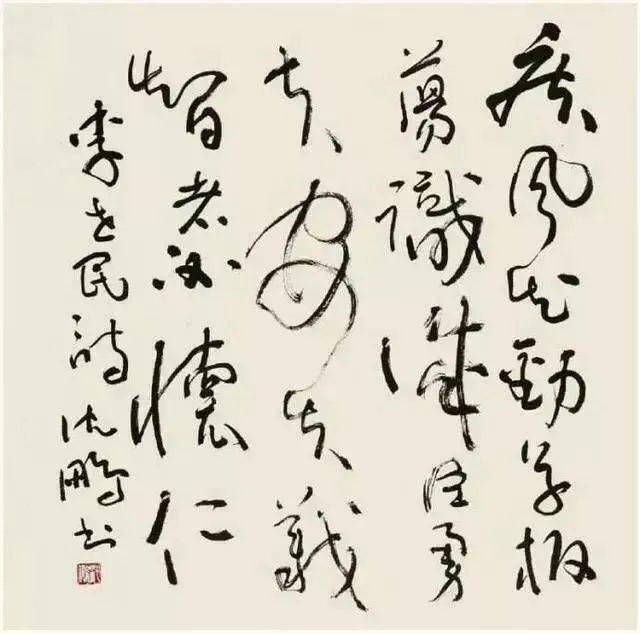 疾風知勁草板
蕩識誠臣勇
夫安知義
智者必懷仁
李世民詩沈鵬書